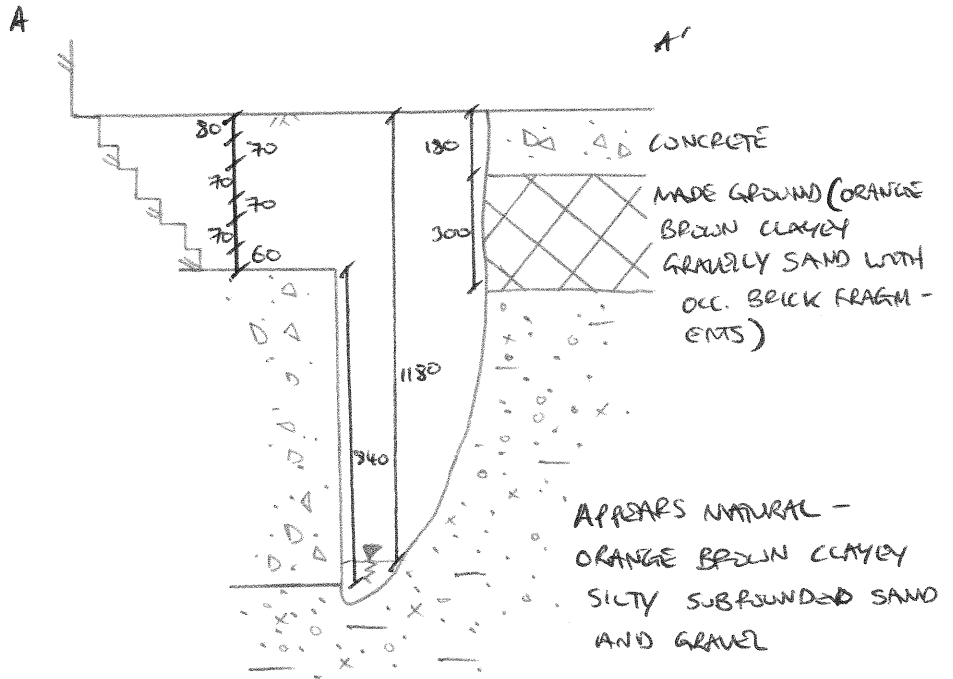 A
A'
80
70
70
70
70
60
180
300
1180
840
CONCRETE
MADE GROUND (ORANGE
BROWN CLAYEY
GRAVELLY SAND WITH
OCC. BRICK FRAGM-
ENTS)
APPEARS NATURAL -
ORANGE BROWN CLAYEY
SILTY SUBROUNDED SAND
AND GRAVEL